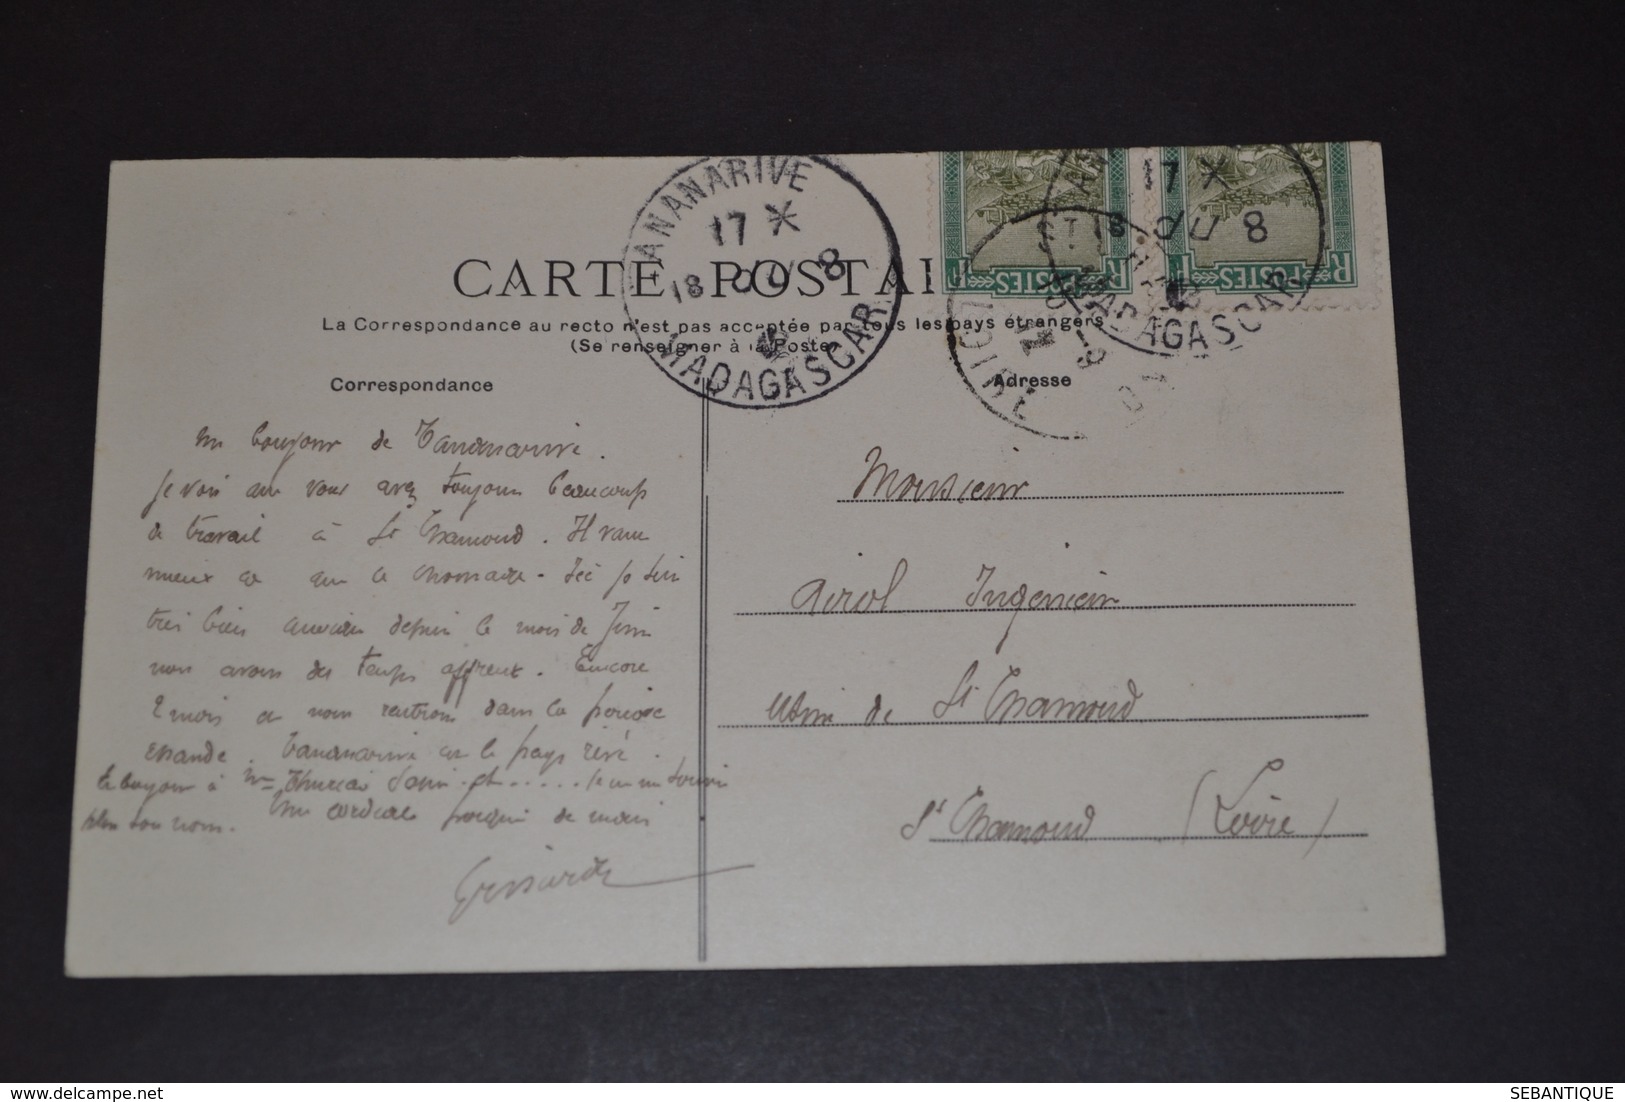 TANANARIVE
17 *
18 8
MADAGASCAR
17 *
18 8
MADAGASCAR
R F
POSTES
R F
POSTES
LOIRE
CARTE POSTAL
La Correspondance au recto n'est pas acceptée par tous les pays étrangers
(Se renseigner à la Poste)
Correspondance
Adresse
Un bonjour de Tananarive.
Je vois que vous avez toujours beaucoup
de travail à St Chamond. Il vaut
mieux ça que le chomage. Ici je suis
très bien depuis le mois de Juin
nous avons des temps affreux. Encore
2 mois et nous rentrons dans la periode
chaude. Tananarive est le pays rêvé.
Le bonjour à Mr et ..... Je ne me souviens
plus son nom. Une cordiale poignée de mains
Monsieur
Airol Ingénieur
Usine de St Chamond
St Chamond (Loire)
delcampe.net
SEBANTIQUE